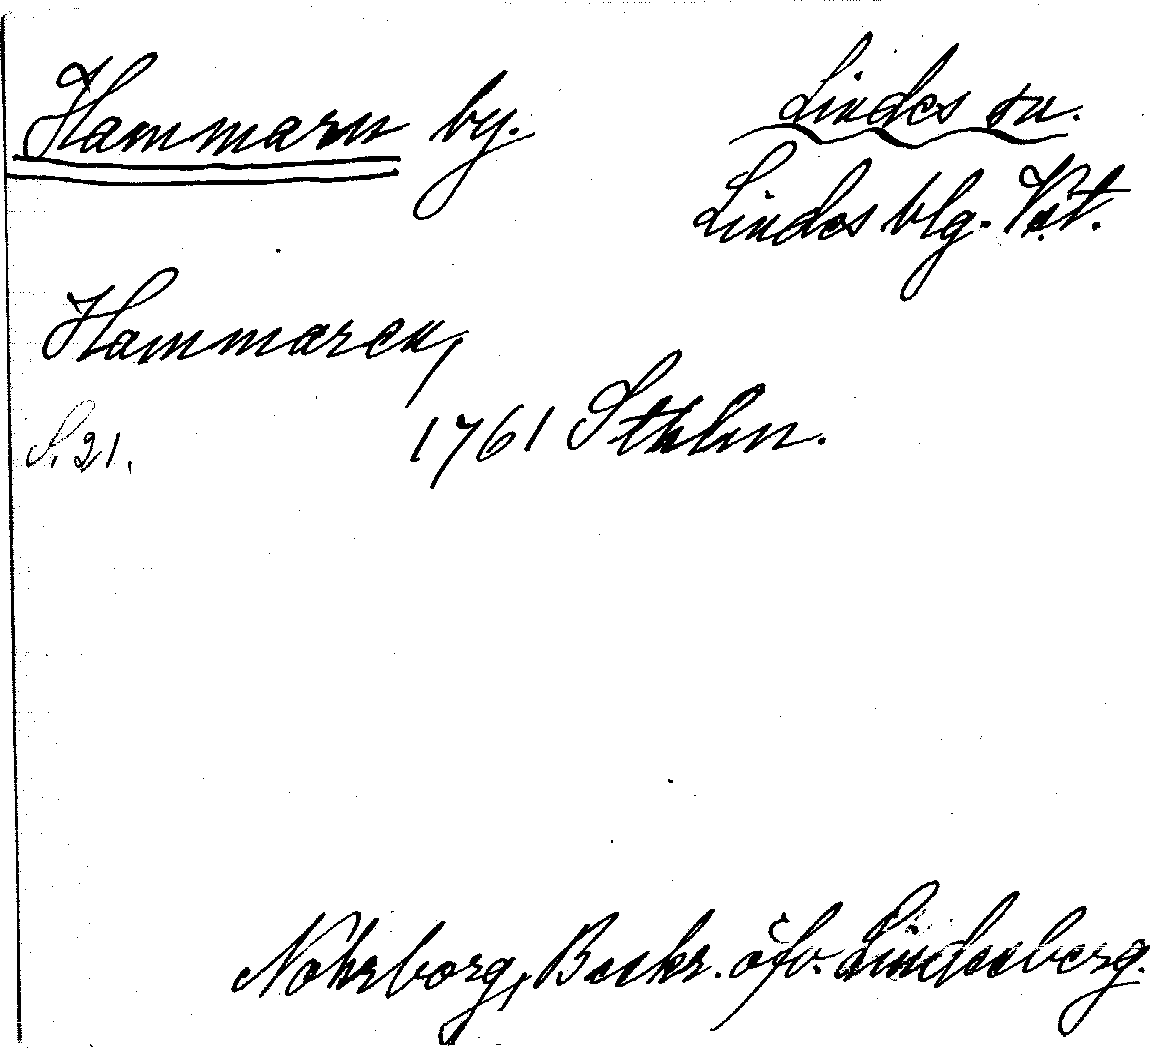 Hammarn by.
Lindes sn.
Lindes blg. Vst.
Hammaren,
S. 21.
1761 Sthlm.
Nohrborg, Beskr. öfv. Lindesberg.